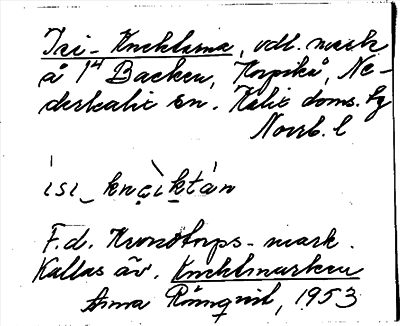 Isi-Knektarna, odl. mark
å 1⁴ Backen, Korpikå, Ne-
derkalix sn. Kalix doms. hg
Norrb. l
ísi‿knæ̀iktán
F.d. Kronotorps-mark.
Kallas äv. Knektmarken
Anna Rönnqvist, 1953